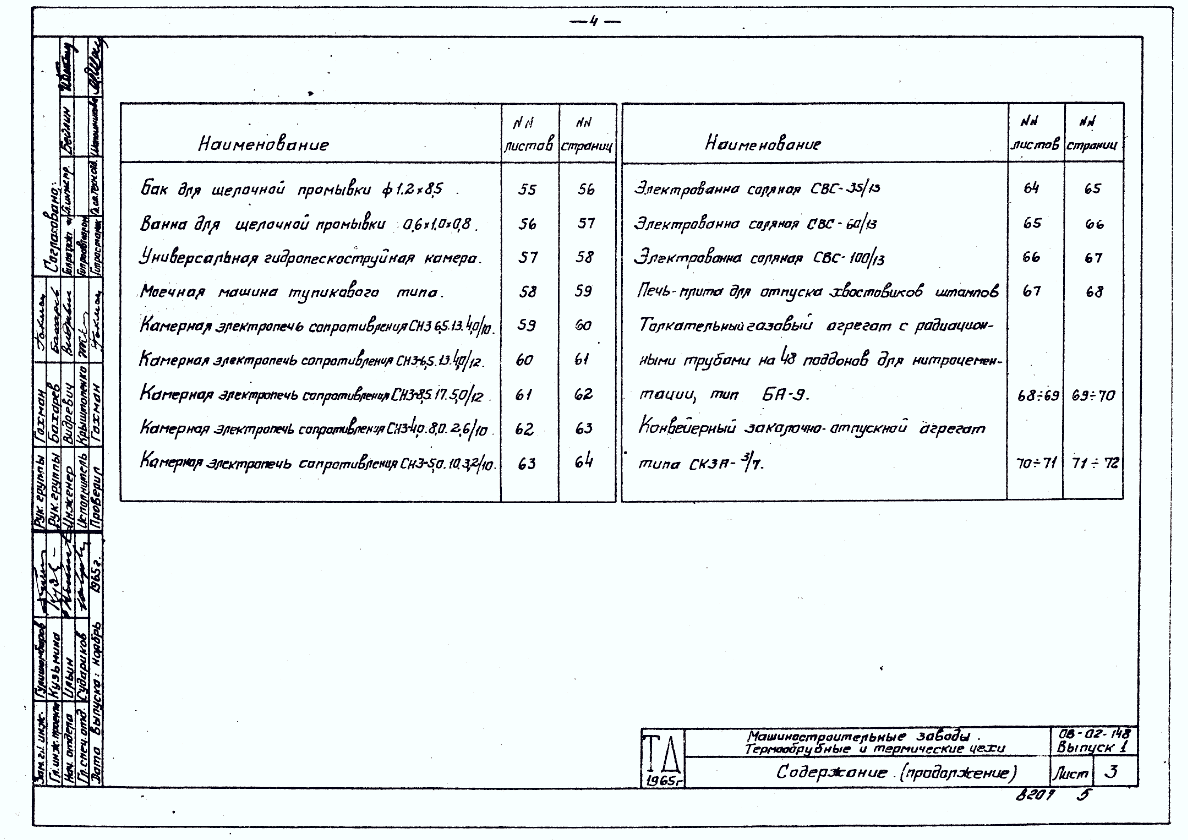 —4—
Наименование
NN листов
NN страниц
Бак для щелочной промывки ф 1.2×8,5 . 55 56
Ванна для щелочной промывки 0,6×1,0×0,8. 56 57
Универсальная гидропескоструйная камера. 57 58
Моечная машина тупикового типа. 58 59
Камерная электропечь сопротивления СНЗ 6,5.13.4,0/10. 59 60
Камерная электропечь сопротивления СНЗ-6,5.13.4,0/12. 60 61
Камерная электропечь сопротивления СНЗ-8,5.17.5,0/12 61 62
Камерная электропечь сопротивления СНЗ-4,0.8,0.2,6/10 62 63
Камерная электропечь сопротивления СНЗ-5,0.10.3,2/10. 63 64
Наименование
NN листов
NN страниц
Электрованна соляная СВС-35/13 64 65
Электрованна соляная СВС-60/13 65 66
Электрованна соляная СВС-100/13 66 67
Печь-плита для отпуска хвостовиков штампов 67 68
Толкательный газовый агрегат с радиацион-
ными трубами на 48 поддонов для нитроцемен-
тации, тип БА-9. 68÷69 69÷70
Конвейерный закалочно-отпускной агрегат
типа СКЗА-3/7. 70÷71 71÷72
Согласовано:
Рук. группы Гохман
Рук. группы Бахарев
Инженер Видревич
Исполнитель Крышталенко
Проверил Гохман
Гл. инж. проекта Кузьмина
Нач. отдела Ильин
Гл. спец. отд. Судариков
Дата выпуска: ноябрь 1965г.
ТД
1965г
Машиностроительные заводы.
Термообрубные и термические цехи
Содержание. (продолжение)
08-02-148
Выпуск 1
Лист 3
8209 5